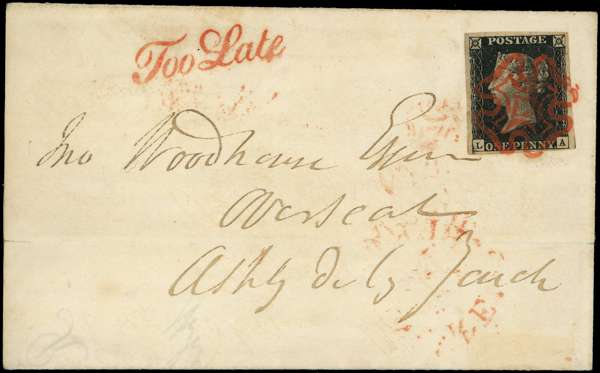 Too Late
POSTAGE
ONE PENNY
L A
Jno Woodhouse Esqre
Overseal
Ashby de la Zouch